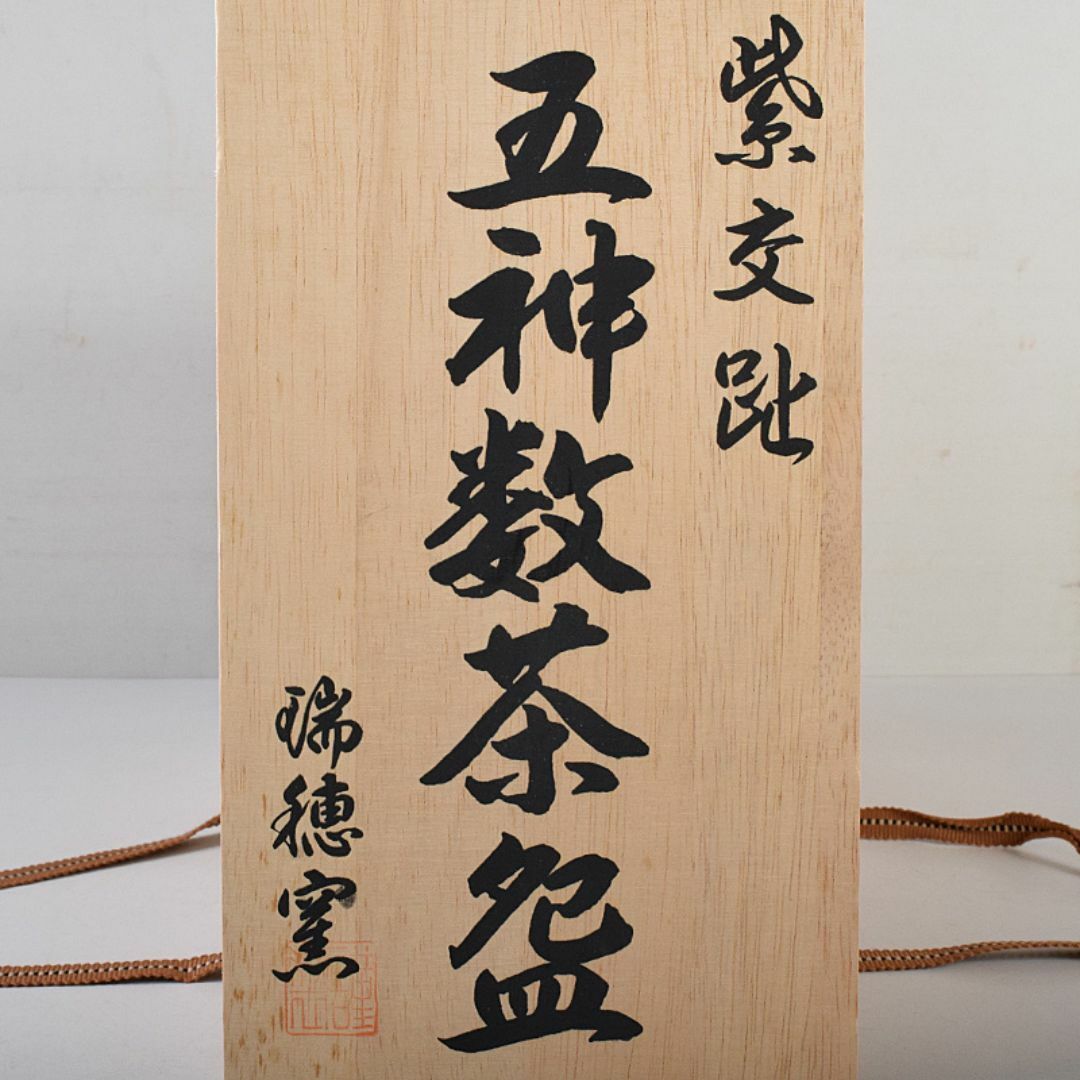 紫交趾
五神数茶盌
瑞穂窯